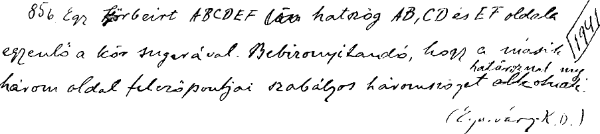 856 Egy körbeirt ABCDEF hatszög AB, CD és EF oldala
egyenlő a kör sugarával. Bebizonyitandó, hogy a másik
három oldal felezőpontjai szabályos háromszöget határoznak meg
1941